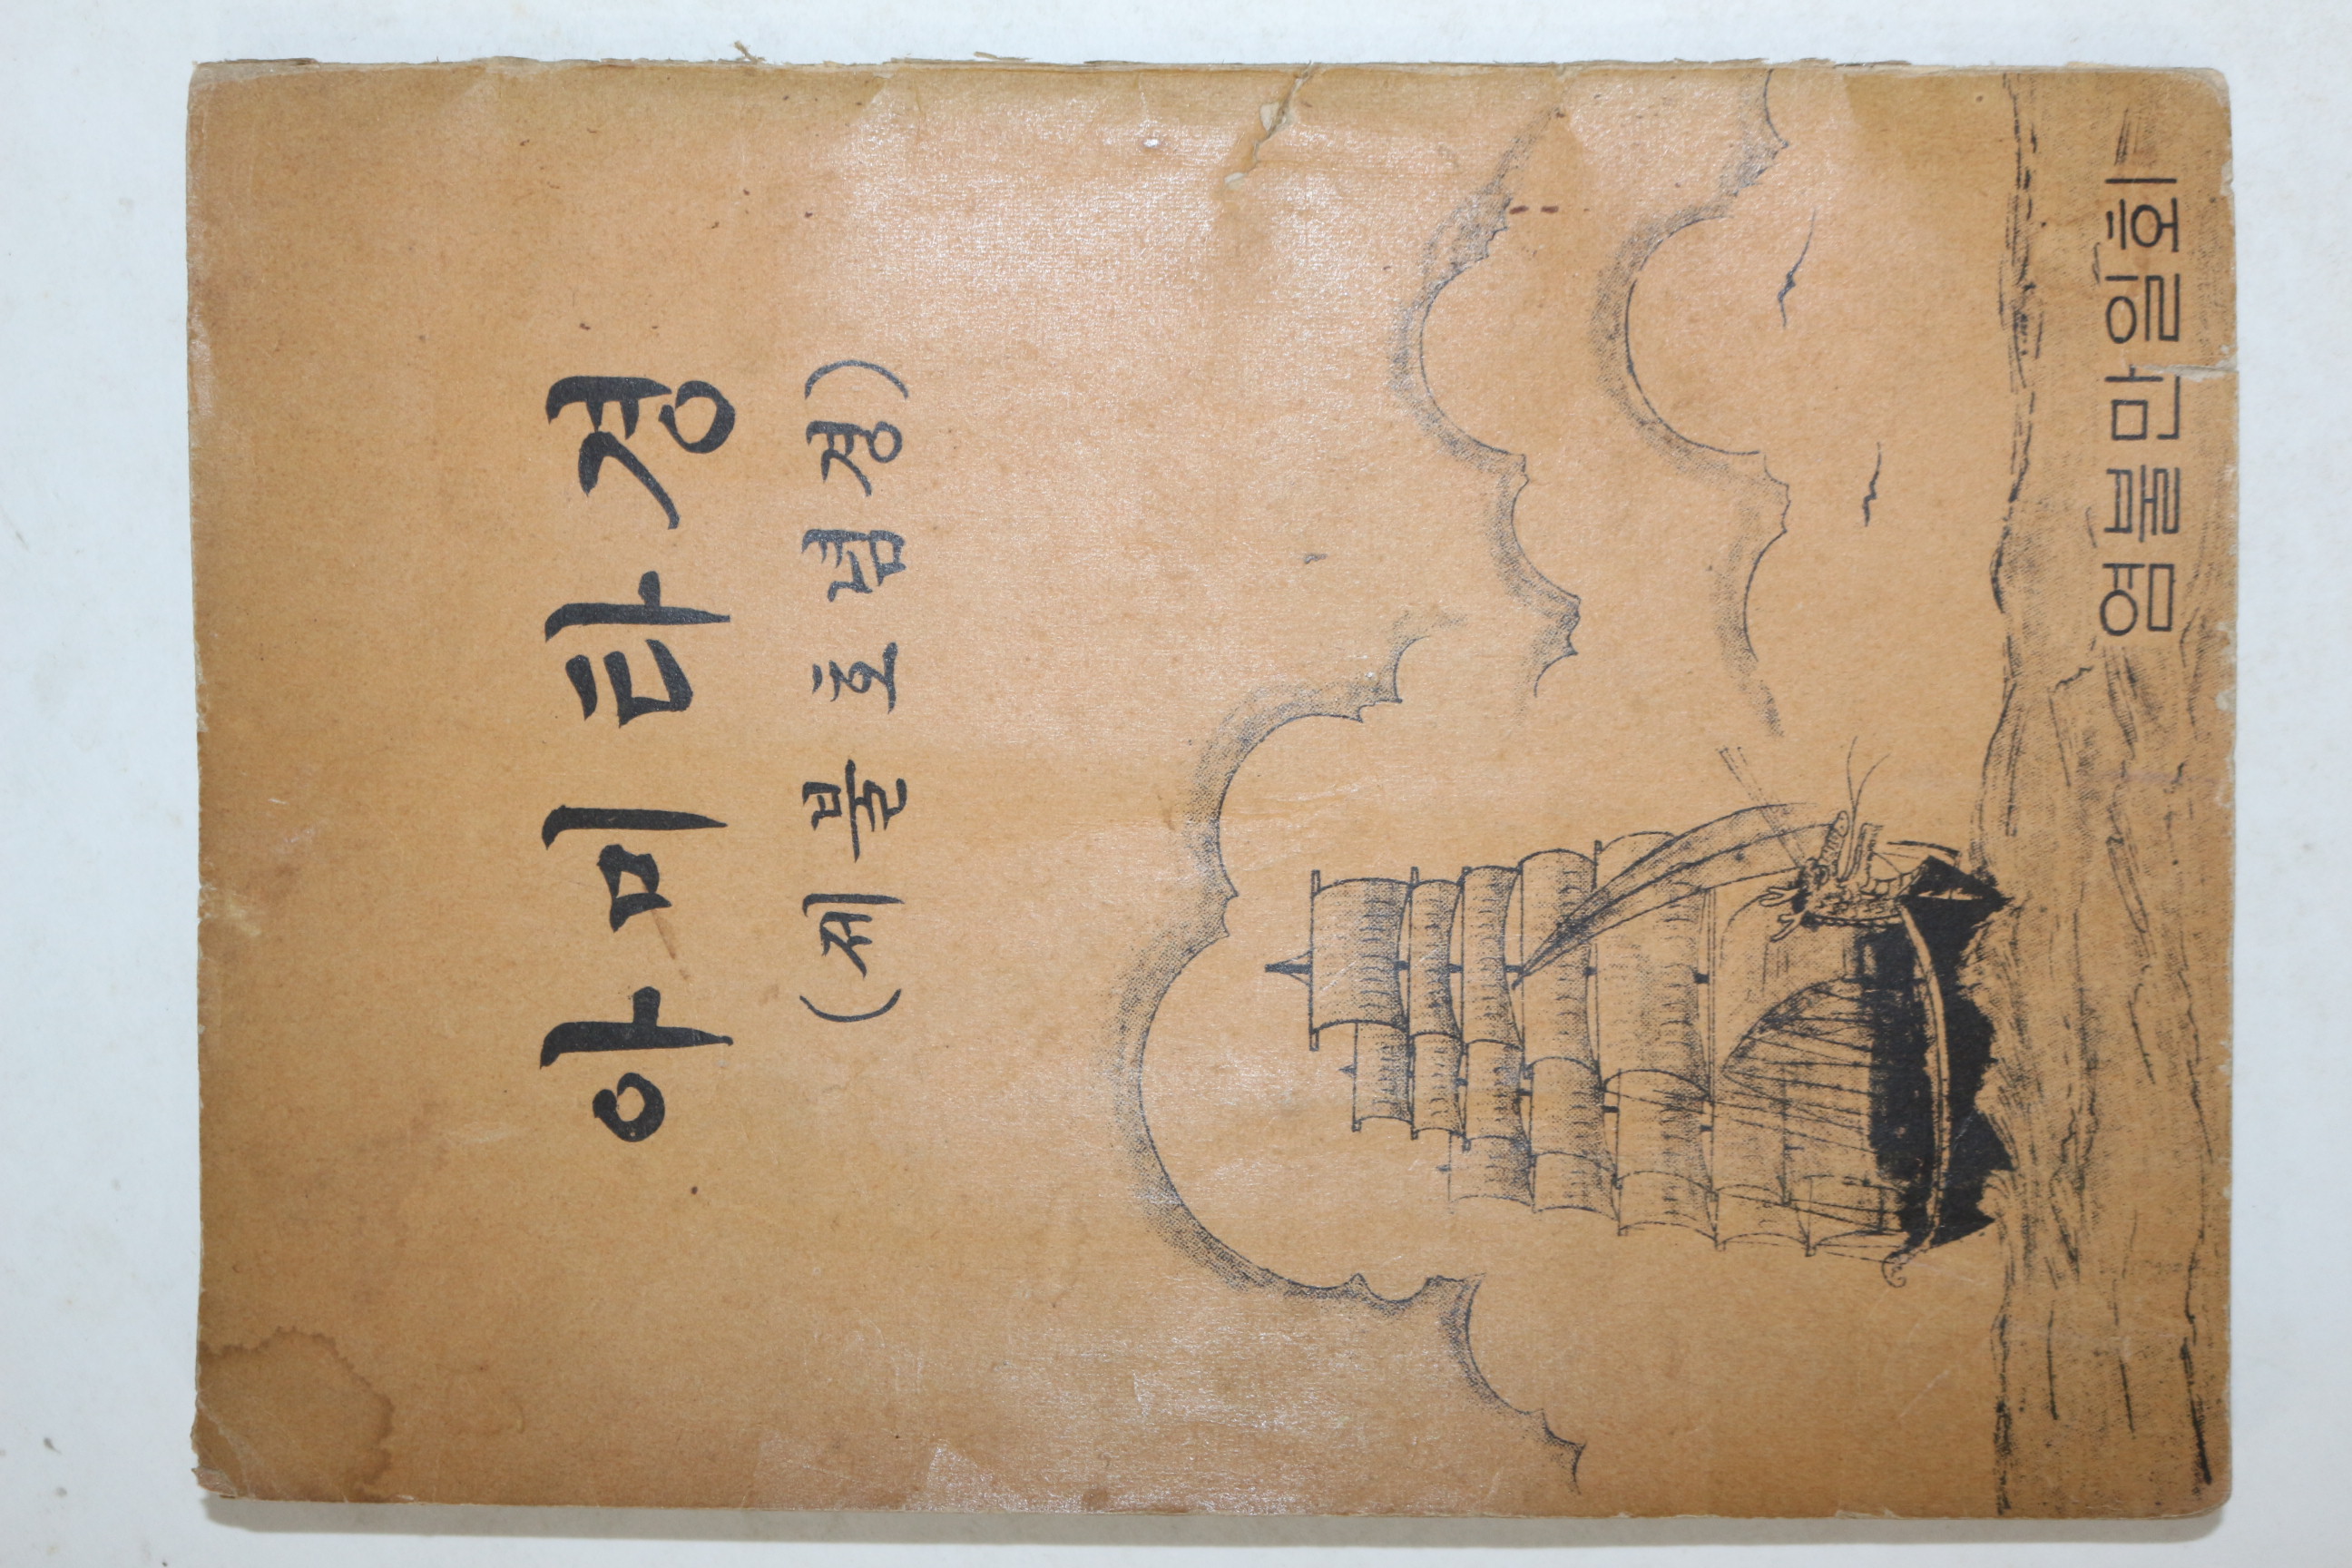 아미타경
(제불호념경)
염불만일회